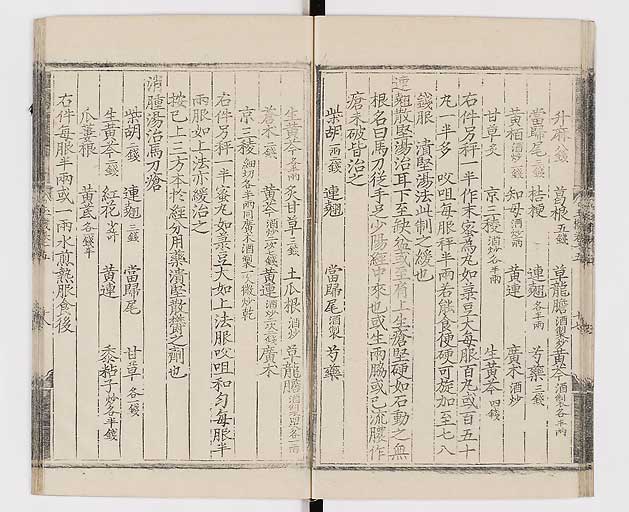 升麻八錢 葛根五錢 草龍膽酒製 黃芩酒製各半兩
當歸尾三錢 桔梗 連翹各半兩 芍藥三錢
黃栢酒炒三錢 知母酒炒半兩 黃連 廣朮酒炒
甘草炙 京三棱酒炒各半兩 生黃芩四錢
右件另秤一半作末蜜為丸如菉豆大每服百丸或百五十
丸一半多㕮咀每服秤半兩若能食便硬可旋加至七八
錢服 潰堅湯法此制之緩也
連翹散堅湯治耳下至缺盆或至肩上生瘡堅硬如石動之無
根名曰馬刀從手足少陽經中來也或生兩脇或已流膿作
瘡未破皆治之
柴胡一兩二錢 連翹 當歸尾酒製 芍藥
生黃芩各半兩 炙甘草三錢 土瓜根酒炒 草龍膽酒製四次各一兩
蒼朮二錢 黃芩酒炒二次七錢 黃連酒炒二次二錢 廣朮
京三棱細切各半兩同廣朮酒製一次微炒乾
右件另秤一半蜜丸如菉豆大如上法服㕮咀和勻每服半
兩服如上法亦緩治之
按已上三方本於經分用藥潰堅散腫之劑也
消腫湯治馬刀瘡
柴胡二錢 連翹三錢 當歸尾 甘草各一錢
生黃芩二錢 紅花少許 黃連 黍粘子炒各半錢
瓜蔞根 黃芪各一錢半
右件每服半兩或一兩水煎熱服食後